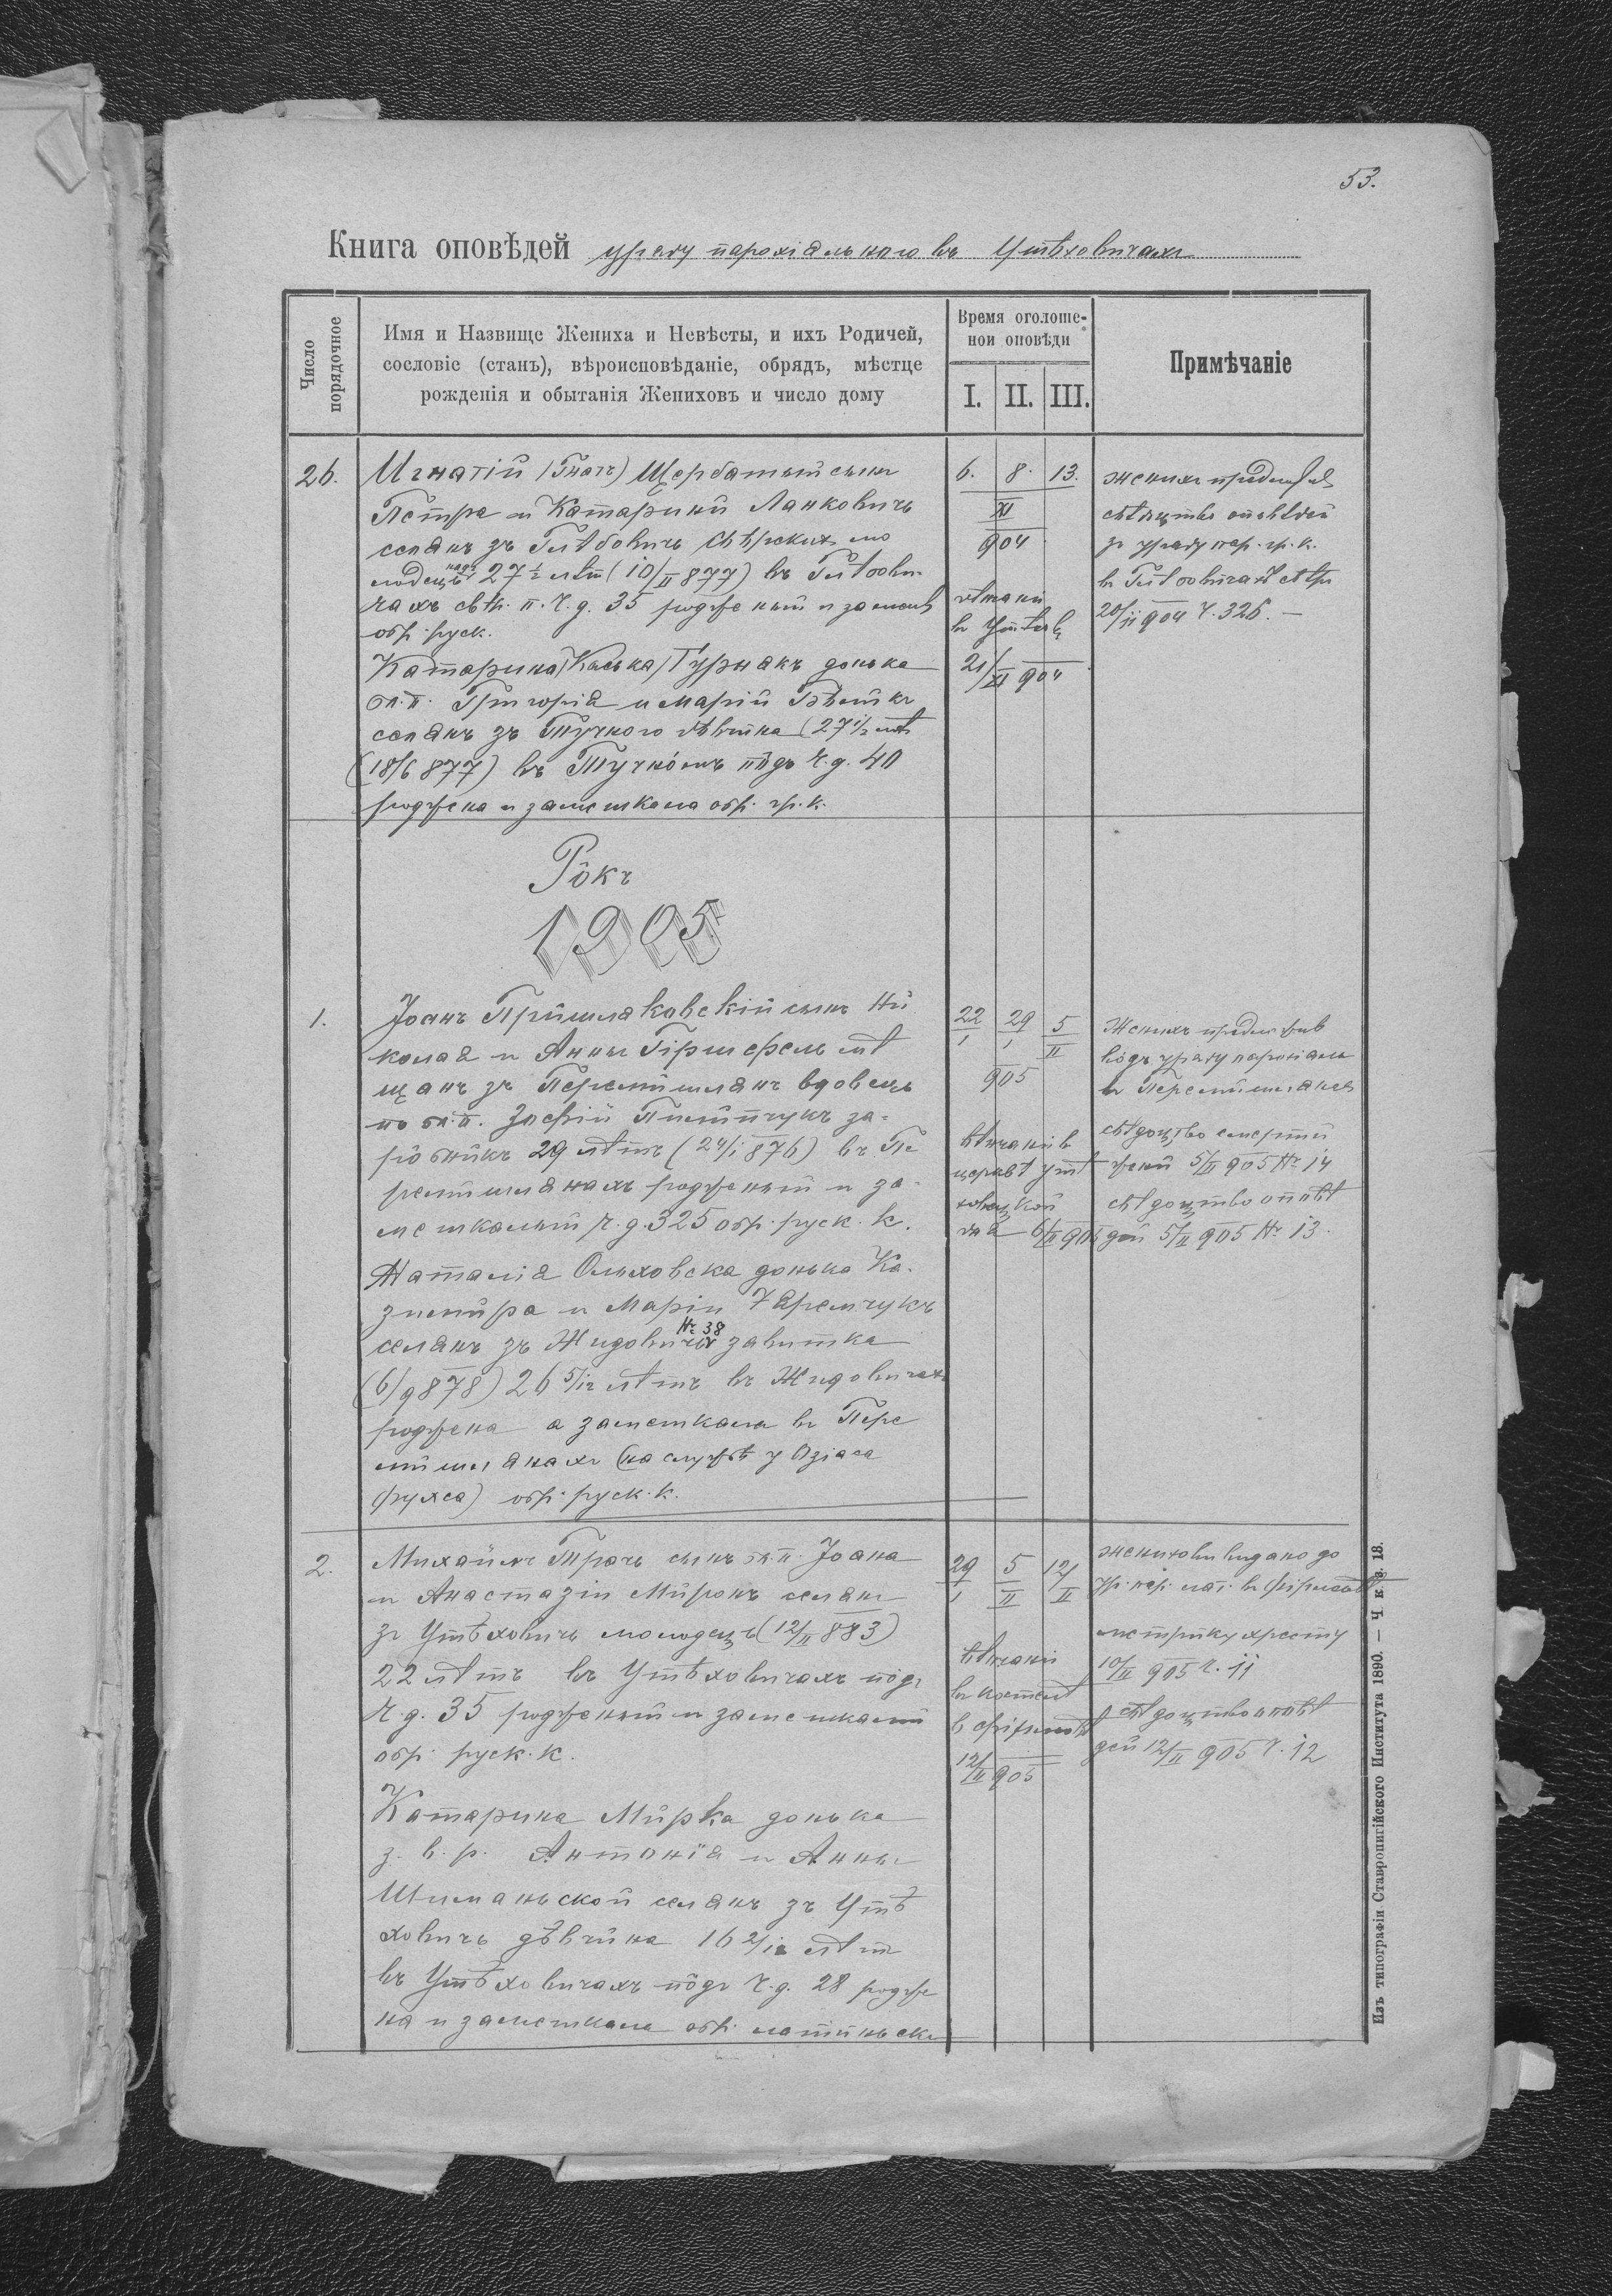 53.
Книга оповѣдей уряду парохіального въ Утѣховичахъ
Число порядочное
Имя и Назвище Жениха и Невѣсты, и ихъ Родичей,
сословіе (станъ), вѣроисповѣданіе, обрядъ, мѣстце
рожденія и обытанія Жениховъ и число дому
Время оголоше-
нои оповѣди
I. II. III.
Примѣчаніе
26.
Игнатій (Гнатъ) Щербатый сынъ
Петра и Катарини Ланковичъ
селянъ зъ
27 ½ лѣтъ (10/II 877) въ
чахъ п. ч. д. 35 родженый и замеш
обр. руск.
Катарина (Каська) Гурнякъ донька
бл. п. Григорія и Маріи
селянъ зъ Тучного дѣвчина (27 ½ лѣтъ
(18/6 877) въ Тучно́мъ пôдъ ч. д. 40
роджена и замешкала обр. гр. к.
6. 8. 13.
XI
904
вѣнчаніи
въ
21/XI 904
женихъ предложивъ
свѣдоцтво оповѣдей
зъ уряду пар. гр. к.
въ
20/11 904 Ч. 326. —
Рôкъ
1905
1.
Іоанъ сынъ Ни
колая и Анны мѣ
щанъ зъ Перемишлянъ вдовець
по бл. п. Зофіи за-
рôбникъ 29 лѣтъ (24/I 876) въ Пе
ремишлянахъ родженый и за-
мешкалый ч. д. 325 обр. руск. к.
Наталія Ольховска донька Ка-
зимира и Маріи Яремчукъ
селянъ зъ Жидовичъ № 38 завитка
(6/9 878) 26 5/12 лѣтъ въ Жидовичахъ
роджена а замешкала въ Пере
мишлянахъ (на службѣ у Озіаса
Фухса) обр. руск. к.
22/I 29/I 5/II
905
вѣнчаніи в
церквѣ Утѣ
ховецкой
дня 6/II 905
Женихъ предложив
вôдъ уряду парохіаль
въ Перемишлянахъ
свѣдоцтво смерти
5/II 905 № 14
свѣдоцтво оповѣ
дей 5/II 905 № 13.
2.
Михаилъ Трачъ сынъ бл. п. Іоана
и Анастазіи Миронъ селянъ
зъ Утѣховичъ молодецъ (12/II 883)
22 лѣтъ въ Утѣховичахъ пôдъ
ч. д. 35 родженый и замешкалый
обр. руск. к.
Катарина Мирка донька
з. в. р. Антонія и Анны
Шиманьской селянъ зъ Утѣ
ховичъ дѣвчина 16 2/12 лѣтъ
въ Утѣховичахъ пôдъ ч. д. 28 родже
на и замешкала обр. латиньск.
29/I 5/II 12/II
вѣнчаніи
въ костелѣ
в Фірлеевѣ
12/II 905
женихови видано до
ур. пар. лат. въ Фірлеевѣ
метрику хресту
10/II 905 ч. 11
свѣдоцтво оповѣ
дей 12/II 905 ч. 12
Изъ типографіи Ставропигійского Института 1890. — Ч. к. в. 18.